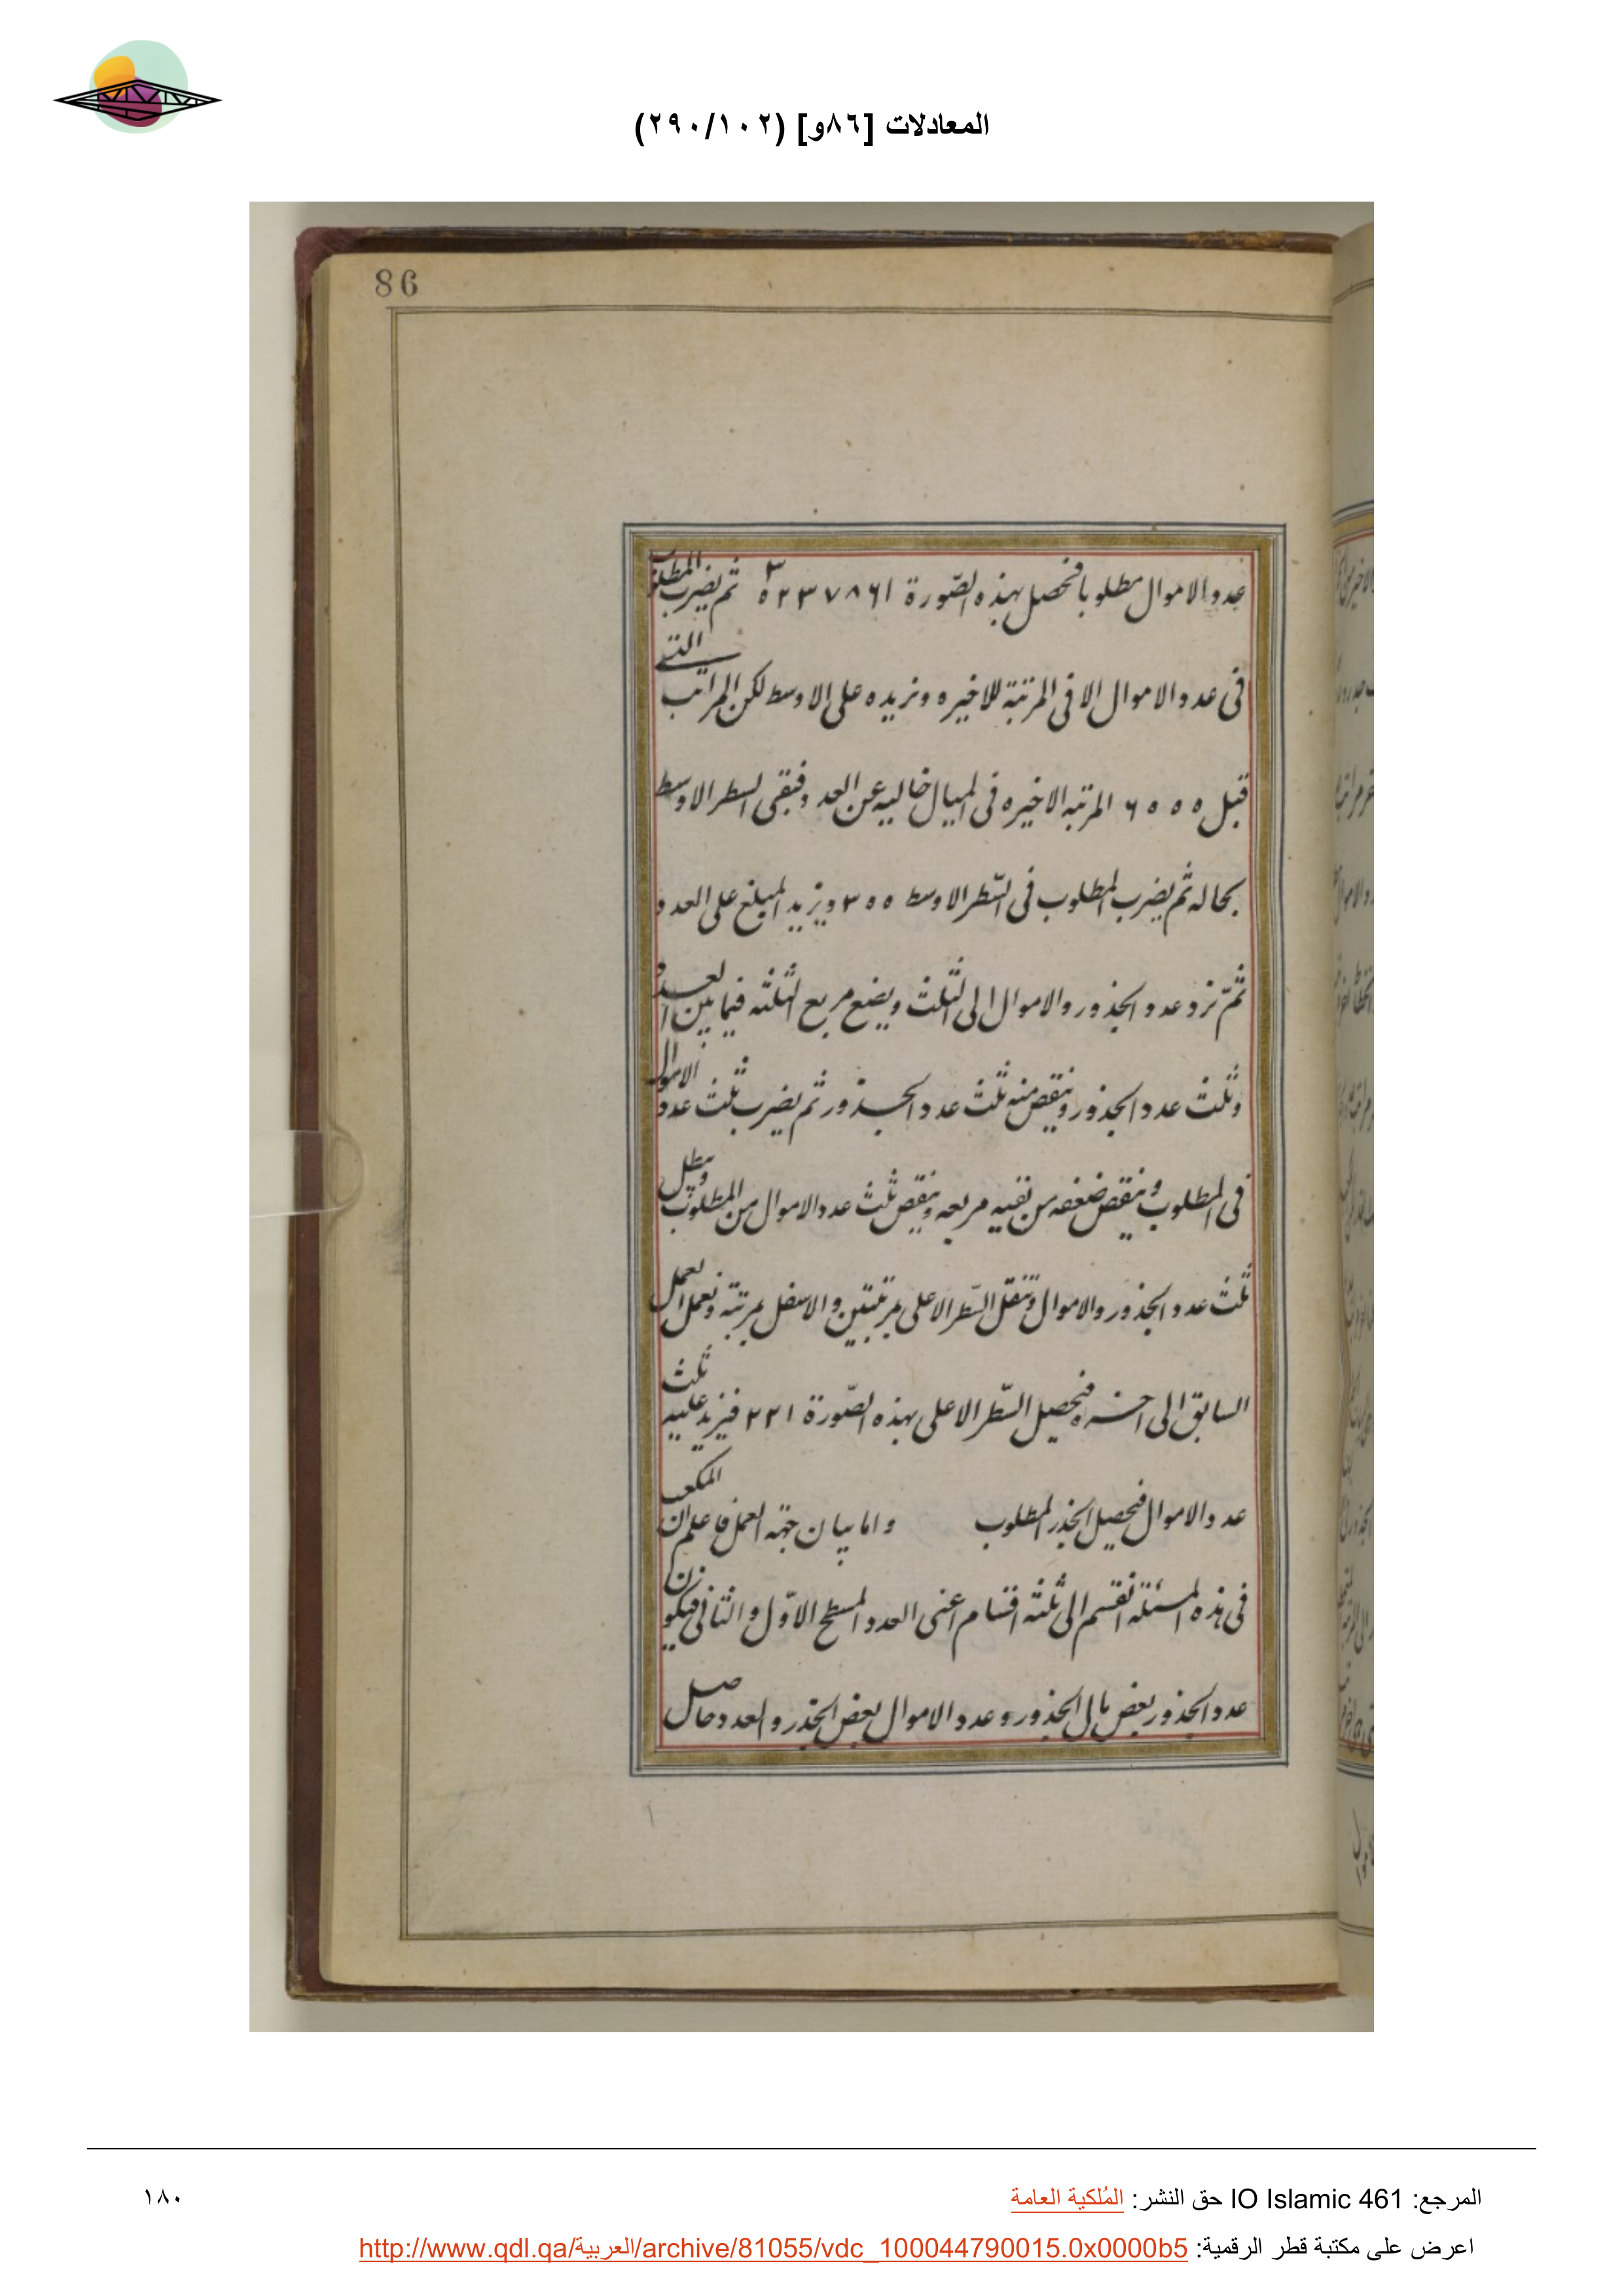 المعادلات [٨٦و] (٢٩٠/١٠٢)
86
عدد الاموال مطلوبا فحصل بهذه الصّورة ٥٢٣٧٨٦١ ٣ ثم يضرب المطلوب
فى عدد الاموال الا فى المرتبة للاخيره ونزيده على الاوسط لكن المراتب التى
قبل ٦٥٥٥ المرتبه الاخيره فى المثال خاليه عن العدد فبقى السطر الاوسط
بحاله ثم يضرب المطلوب فى السّطر الاوسط ٣٥٥ ويزيد المبلغ على العدد
ثمّ نزد عدد الجذور والاموال الى الثلث ويضع مربع الثلثه فيما بين العدد
وثلث عدد الجذور وينقص منه ثلث عدد الجذور ثم يضرب ثلث عدد الاموال
فى المطلوب وينقص ضعفه من نفسه مربعه وينقص ثلث عدد الاموال من المطلوب
ثلث عدد الجذور والاموال وتنقل السّطر الاعلى مرتبتين والاسفل بمرتبة ونعمل العمل
السابق الى اخره فيحصل السّطر الاعلى بهذه الصّورة ٢٢١ فيزيد عليه ثلث
عدد الاموال فيحصل الجذر المطلوب واما بيان جهة العمل فاعلم ان المكعب
فى هذه المسئلة انقسم الى ثلثه اقسام اعنى العدد المسطح الاوّل والثانى فيكون
عدد الجذور بعض بالى الجذور وعدد الاموال بعض الجذر والعدد حاصل
المرجع: IO Islamic 461 حق النشر: المُلكية العامة
١٨٠
اعرض على مكتبة قطر الرقمية: http://www.qdl.qa/العربية/archive/81055/vdc_100044790015.0x0000b5